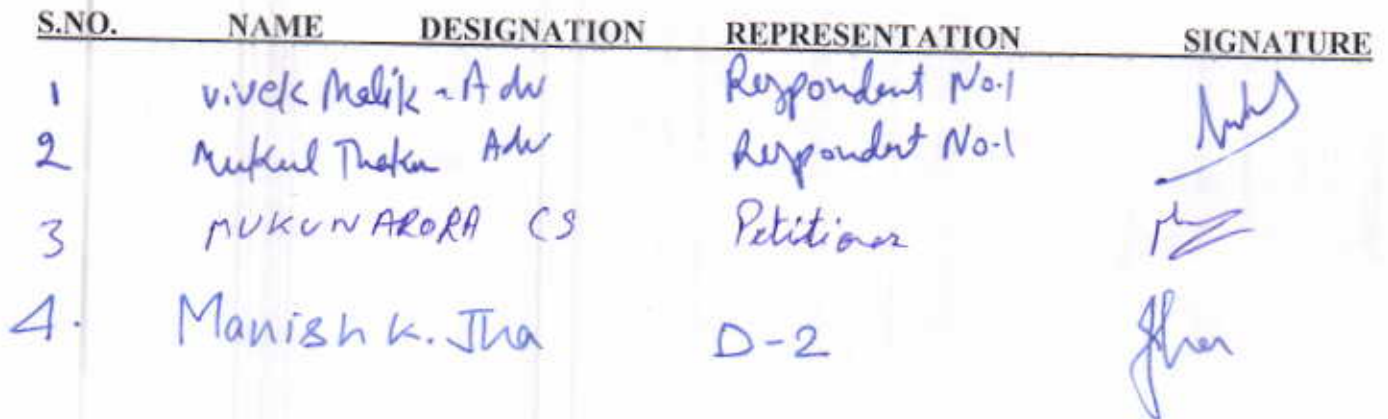 S.NO. NAME DESIGNATION REPRESENTATION SIGNATURE
1 Vivek Malik - Adv Respondent No.1
2 Mukul Adv Respondent No-1
3 MUKUN ARORA CS Petitioner
4. Manish K. Jha D-2 Jha